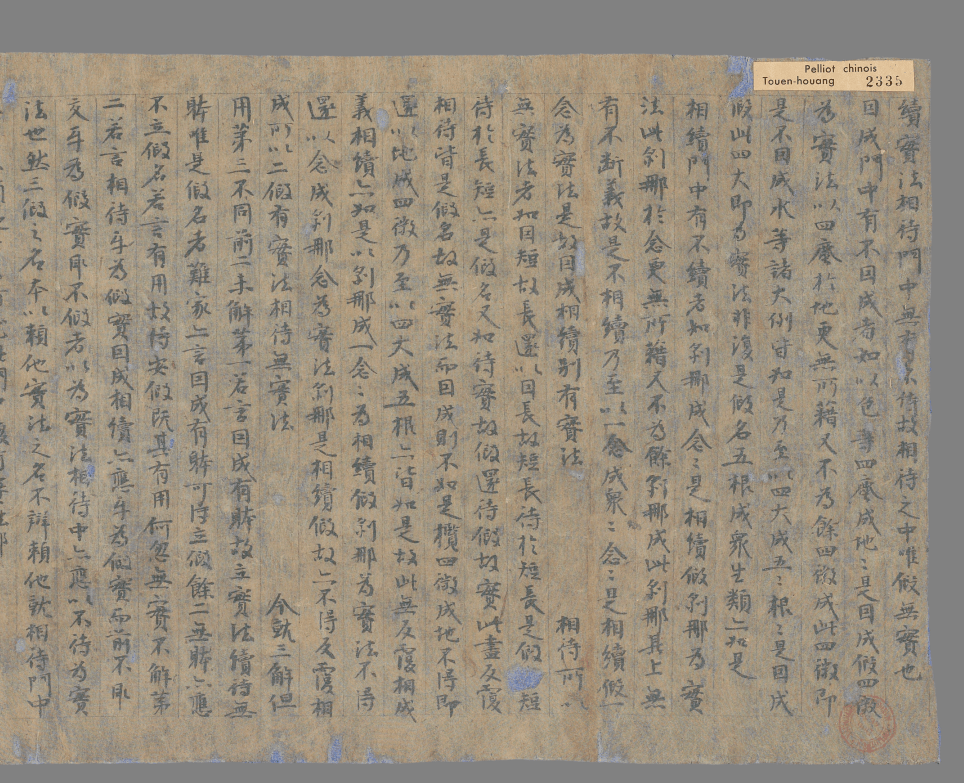 Pelliot chinois
Touen-houang 2335
續實法相待門中無有不待故相待之中唯假無實也
因成門中有不因成者如以色等四塵成地〻是因成假四微
為實法以四塵於地更無所藉又不為餘四微成此四微即
是不因成水等諸大例皆如是乃至以四大成五〻根〻是因成
假此四大即為實法非復是假名五根成眾生類亦如是
相續門中有不續者如剎那成念〻是相續假剎那為實
法此剎那於念更無所藉又不為餘剎那成此剎那其上無
有不斷義故是不相續乃至以一念成眾〻念〻是相續假一
念為實法是故因成相續別有實法 相待所以
無實法者如因短故長還以因長故短長待於短長是假短
待於長短亦是假名又如待實故假還待假故實此盡反覆
相待皆是假名故無實法而因成則不如是攬四微成地不得即
還以地成四微乃至以四大成五根亦皆如是故此無反覆相成
義相續亦如是以剎那成一念〻為相續假剎那為實法不得
還以念成剎那念為實法剎那是相續假故亦不得反覆相
成所以二假有實法相待無實法 今就三解但
用第三不同前二未解第一若言因成有體故立實法續待無
體唯是假名者難家亦言因成有體可得立假餘二無體亦應
不立假名若言有用故得安假既其有用何忽無實不解第
二若言相待半為假實因成相續亦應半為假實而前不即
文半為假實即不假者以為實法相待中亦應以不待為實
法也然三假之名本以賴他實法之名不辯賴他就相待門中